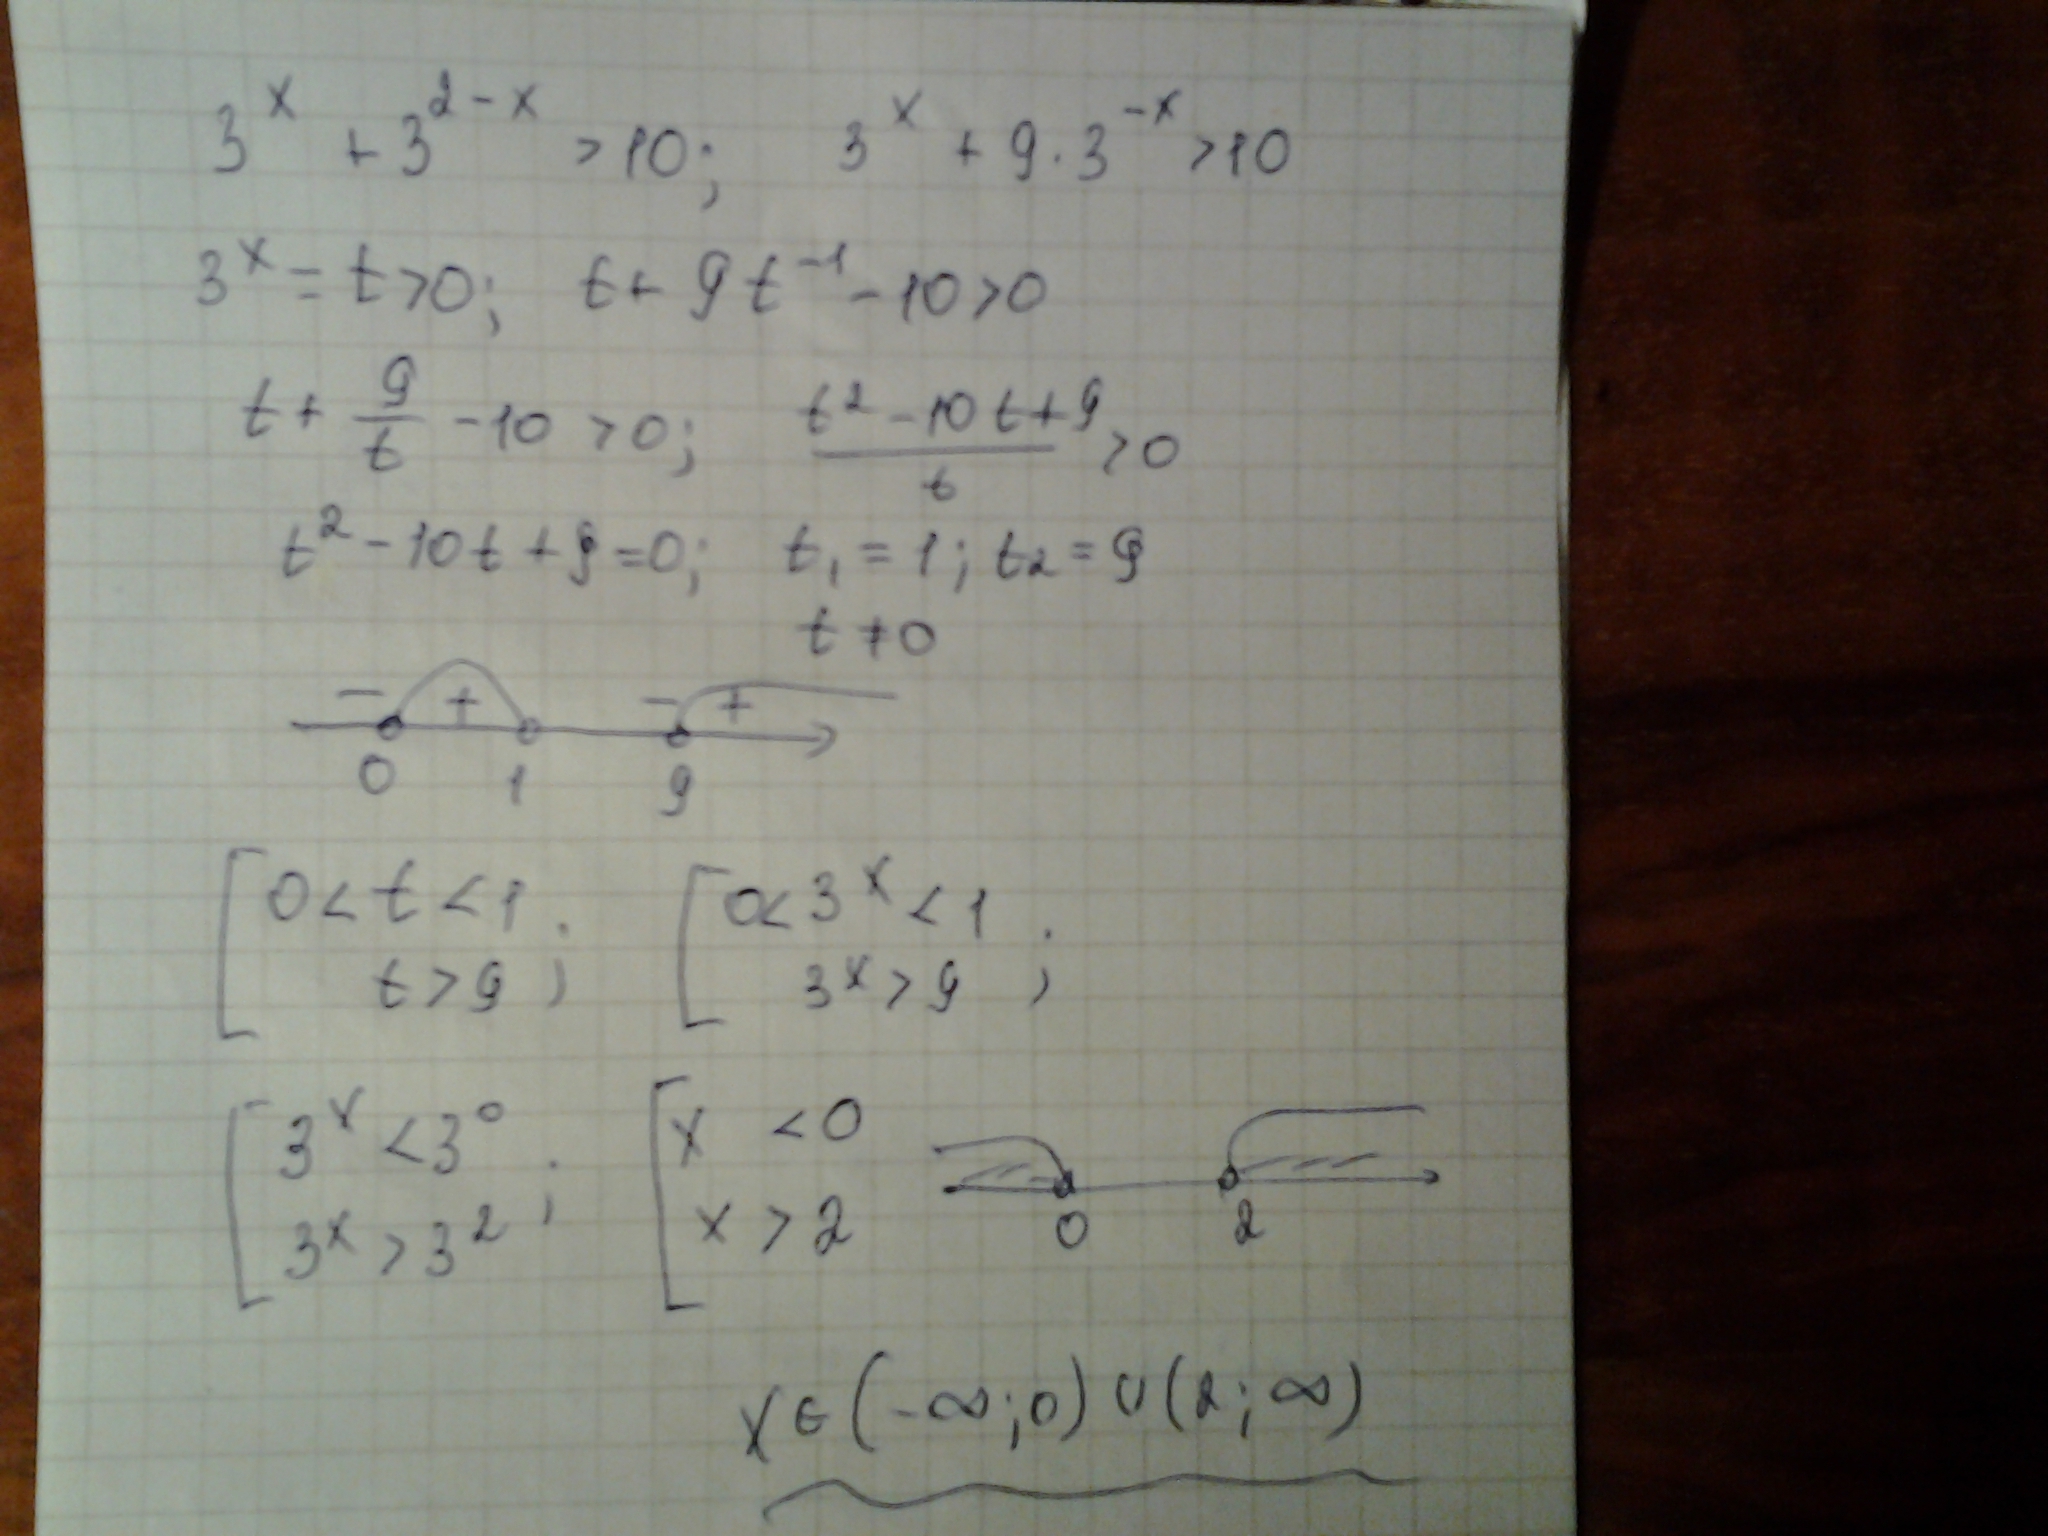 3^x + 3^{2-x} > 10; 3^x + 9·3^{-x} > 10
3^x = t > 0; t + 9t^{-1} - 10 > 0
t + 9/t - 10 > 0; (t² - 10t + 9)/t > 0
t² - 10t + 9 = 0; t₁ = 1; t₂ = 9
t ≠ 0
- + - +
0 1 9
[ 0 < t < 1 ; [ 0 < 3^x < 1 ;
t > 9 3^x > 9
[ 3^x < 3^0 ; [ x < 0
3^x > 3^2 x > 2
0 2
x ∈ (-∞; 0) ∪ (2; ∞)